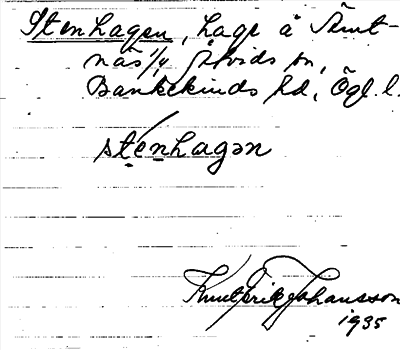 Stenhagen, hage å Tömt-
näs 1/4 Åtvids sn,
Bankekinds hd, Ögl. l.
stenhagən
Knut Eric Johansson
1935